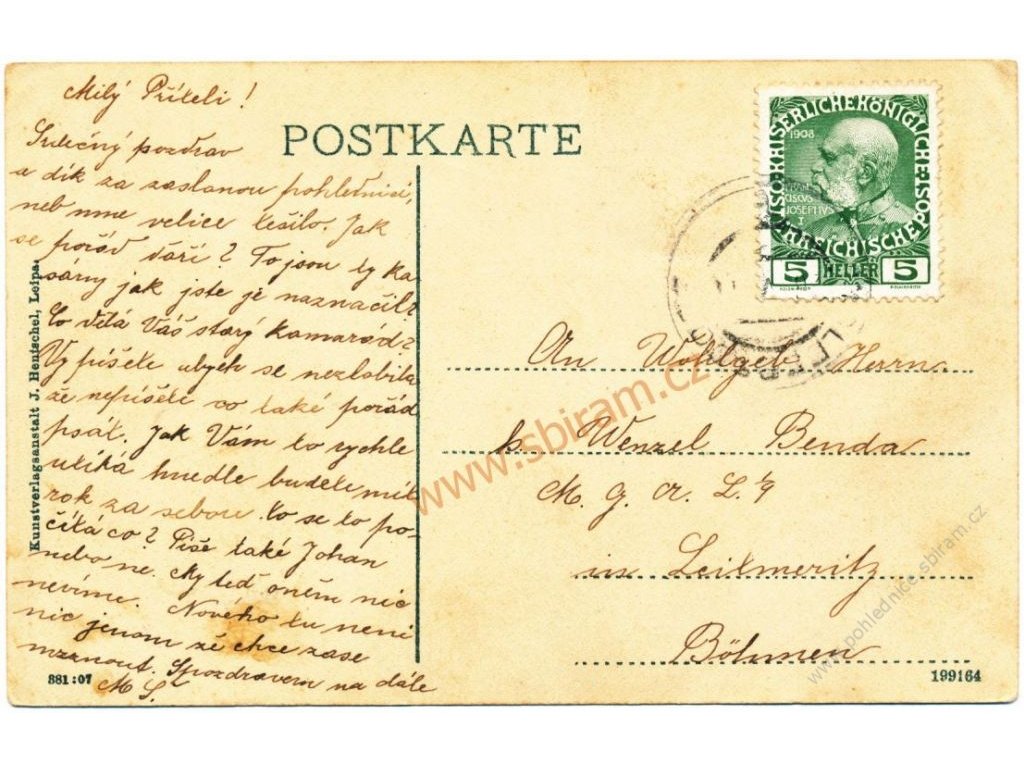 Milý Příteli!
Srdečný pozdrav
a dík za zaslanou pohlednici,
neb mne velice těšilo. Jak
se pořád daří? To jsou ty ka
sárny jak jste je naznačil?
Co dělá Váš starý kamarád?
Vy píšete abych se nezlobila
že nepíšete co také pořád
psát. Jak Vám to rychle
utíká hnedle budete mít
rok za sebou. to se to po-
čítá co? Píše také Johan
nebo ne. My teď o něm nic
nevíme. Nového tu není
nic jenom že chce zase
mrznout. S pozdravem na dále
M S.
Kunstverlagsanstalt J. Hentschel, Leipa.
881:07
POSTKARTE
KAISERLICHEKÖNIGLICHE ÖSTERREICHISCHE POST
1908
FRAN
CISCVS
IOSEPHVS
I
5 HELLER 5
An Wohlgeb. Herrn
Wenzel Benda
in Leitmeritz
Böhmen
199164
www.sbiram.cz
www.pohlednice.sbiram.cz